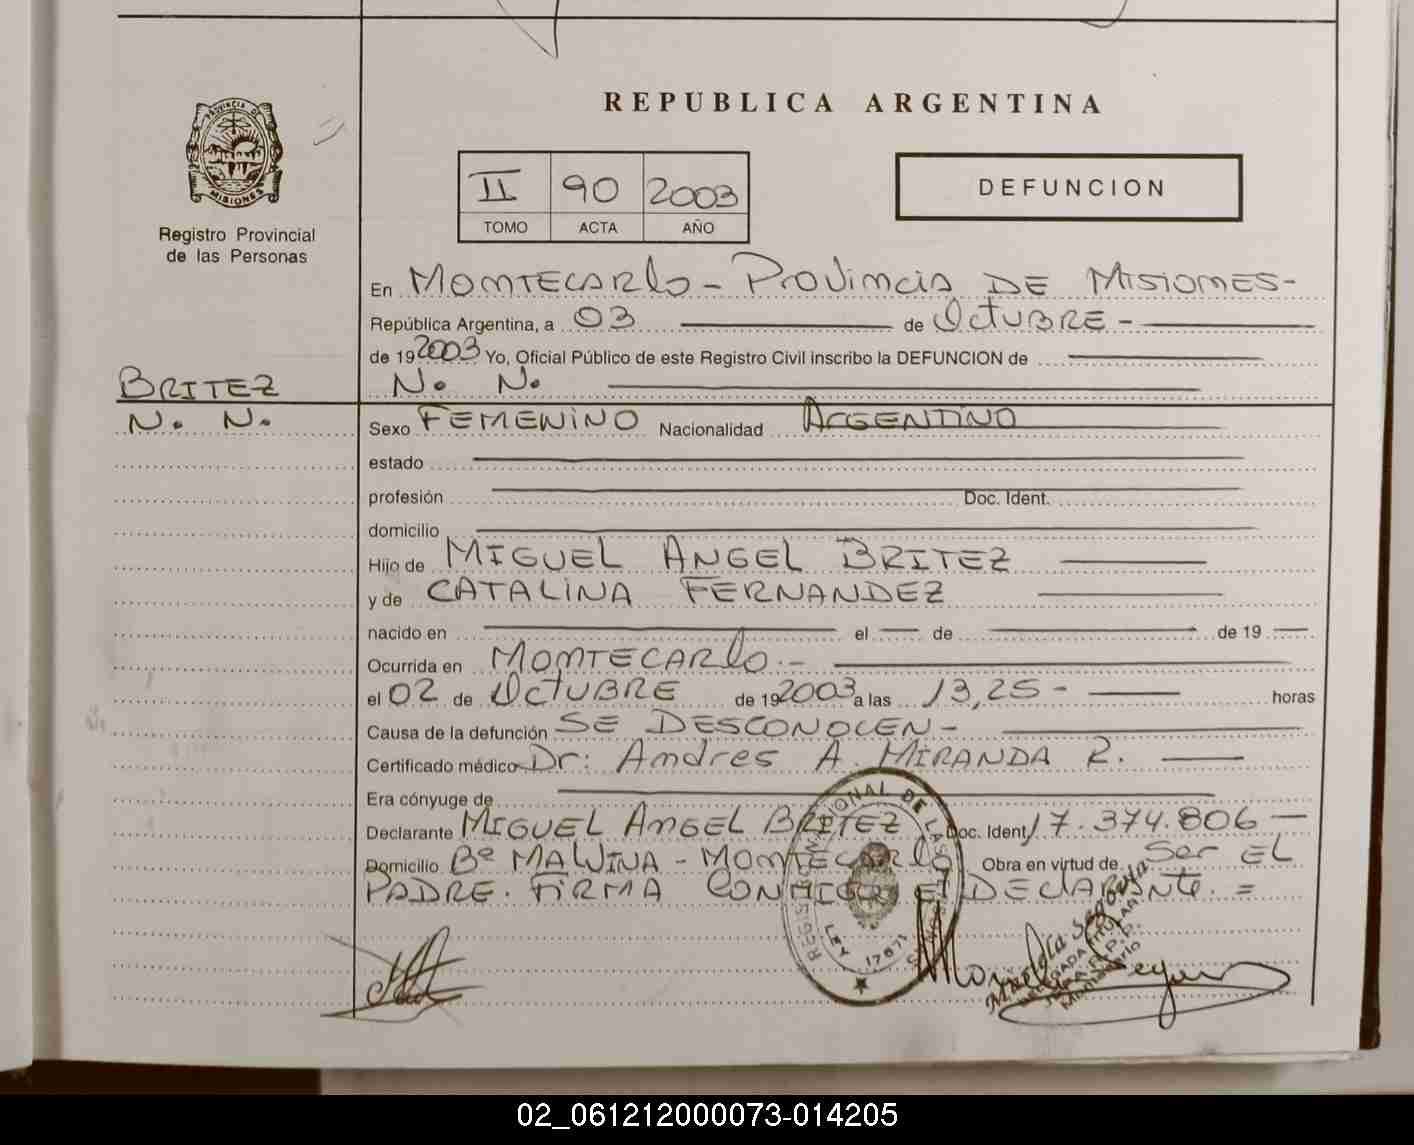 REPUBLICA ARGENTINA
PROVINCIA DE
MISIONES
Registro Provincial
de las Personas
II 90 2003
TOMO ACTA AÑO
DEFUNCION
En MONTECARLO - PROVINCIA DE MISIONES-
República Argentina, a 03 de OCTUBRE -
de 19 2003 Yo, Oficial Público de este Registro Civil inscribo la DEFUNCION de
BRITEZ
N. N.
N. N.
Sexo FEMENINO Nacionalidad ARGENTINO
estado
profesión Doc. Ident.
domicilio
Hijo de MIGUEL ANGEL BRITEZ
y de CATALINA FERNANDEZ
nacido en el de de 19
Ocurrida en MONTECARLO.-
el 02 de OCTUBRE de 19 2003 a las 13,25- horas
Causa de la defunción SE DESCONOCEN-
Certificado médico Dr: Andres A. MIRANDA R.
Era cónyuge de
Declarante MIGUEL ANGEL BRITEZ Doc. Ident. 17.374.806
Domicilio Bº MALVINA - MONTECARLO Obra en virtud de Ser EL
PADRE. FIRMA CONMIGO EL DECLARANTE. =
LEY 17671
02_061212000073-014205